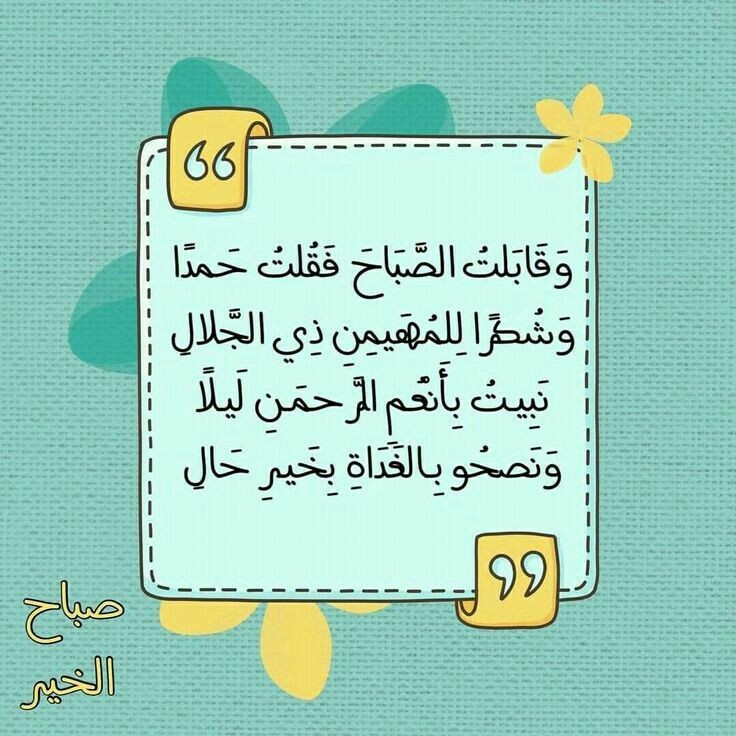 وَقَابَلتُ الصَّبَاحَ فَقُلتُ حَمدًا
وَشُكرًا لِلمُهَيمِنِ ذِي الجَّلالِ
نَبِيتُ بِأَنعُمِ الرَّحمَنِ لَيلًا
وَنَصحُو بِالغَدَاةِ بِخَيرِ حَالِ
صباح
الخير